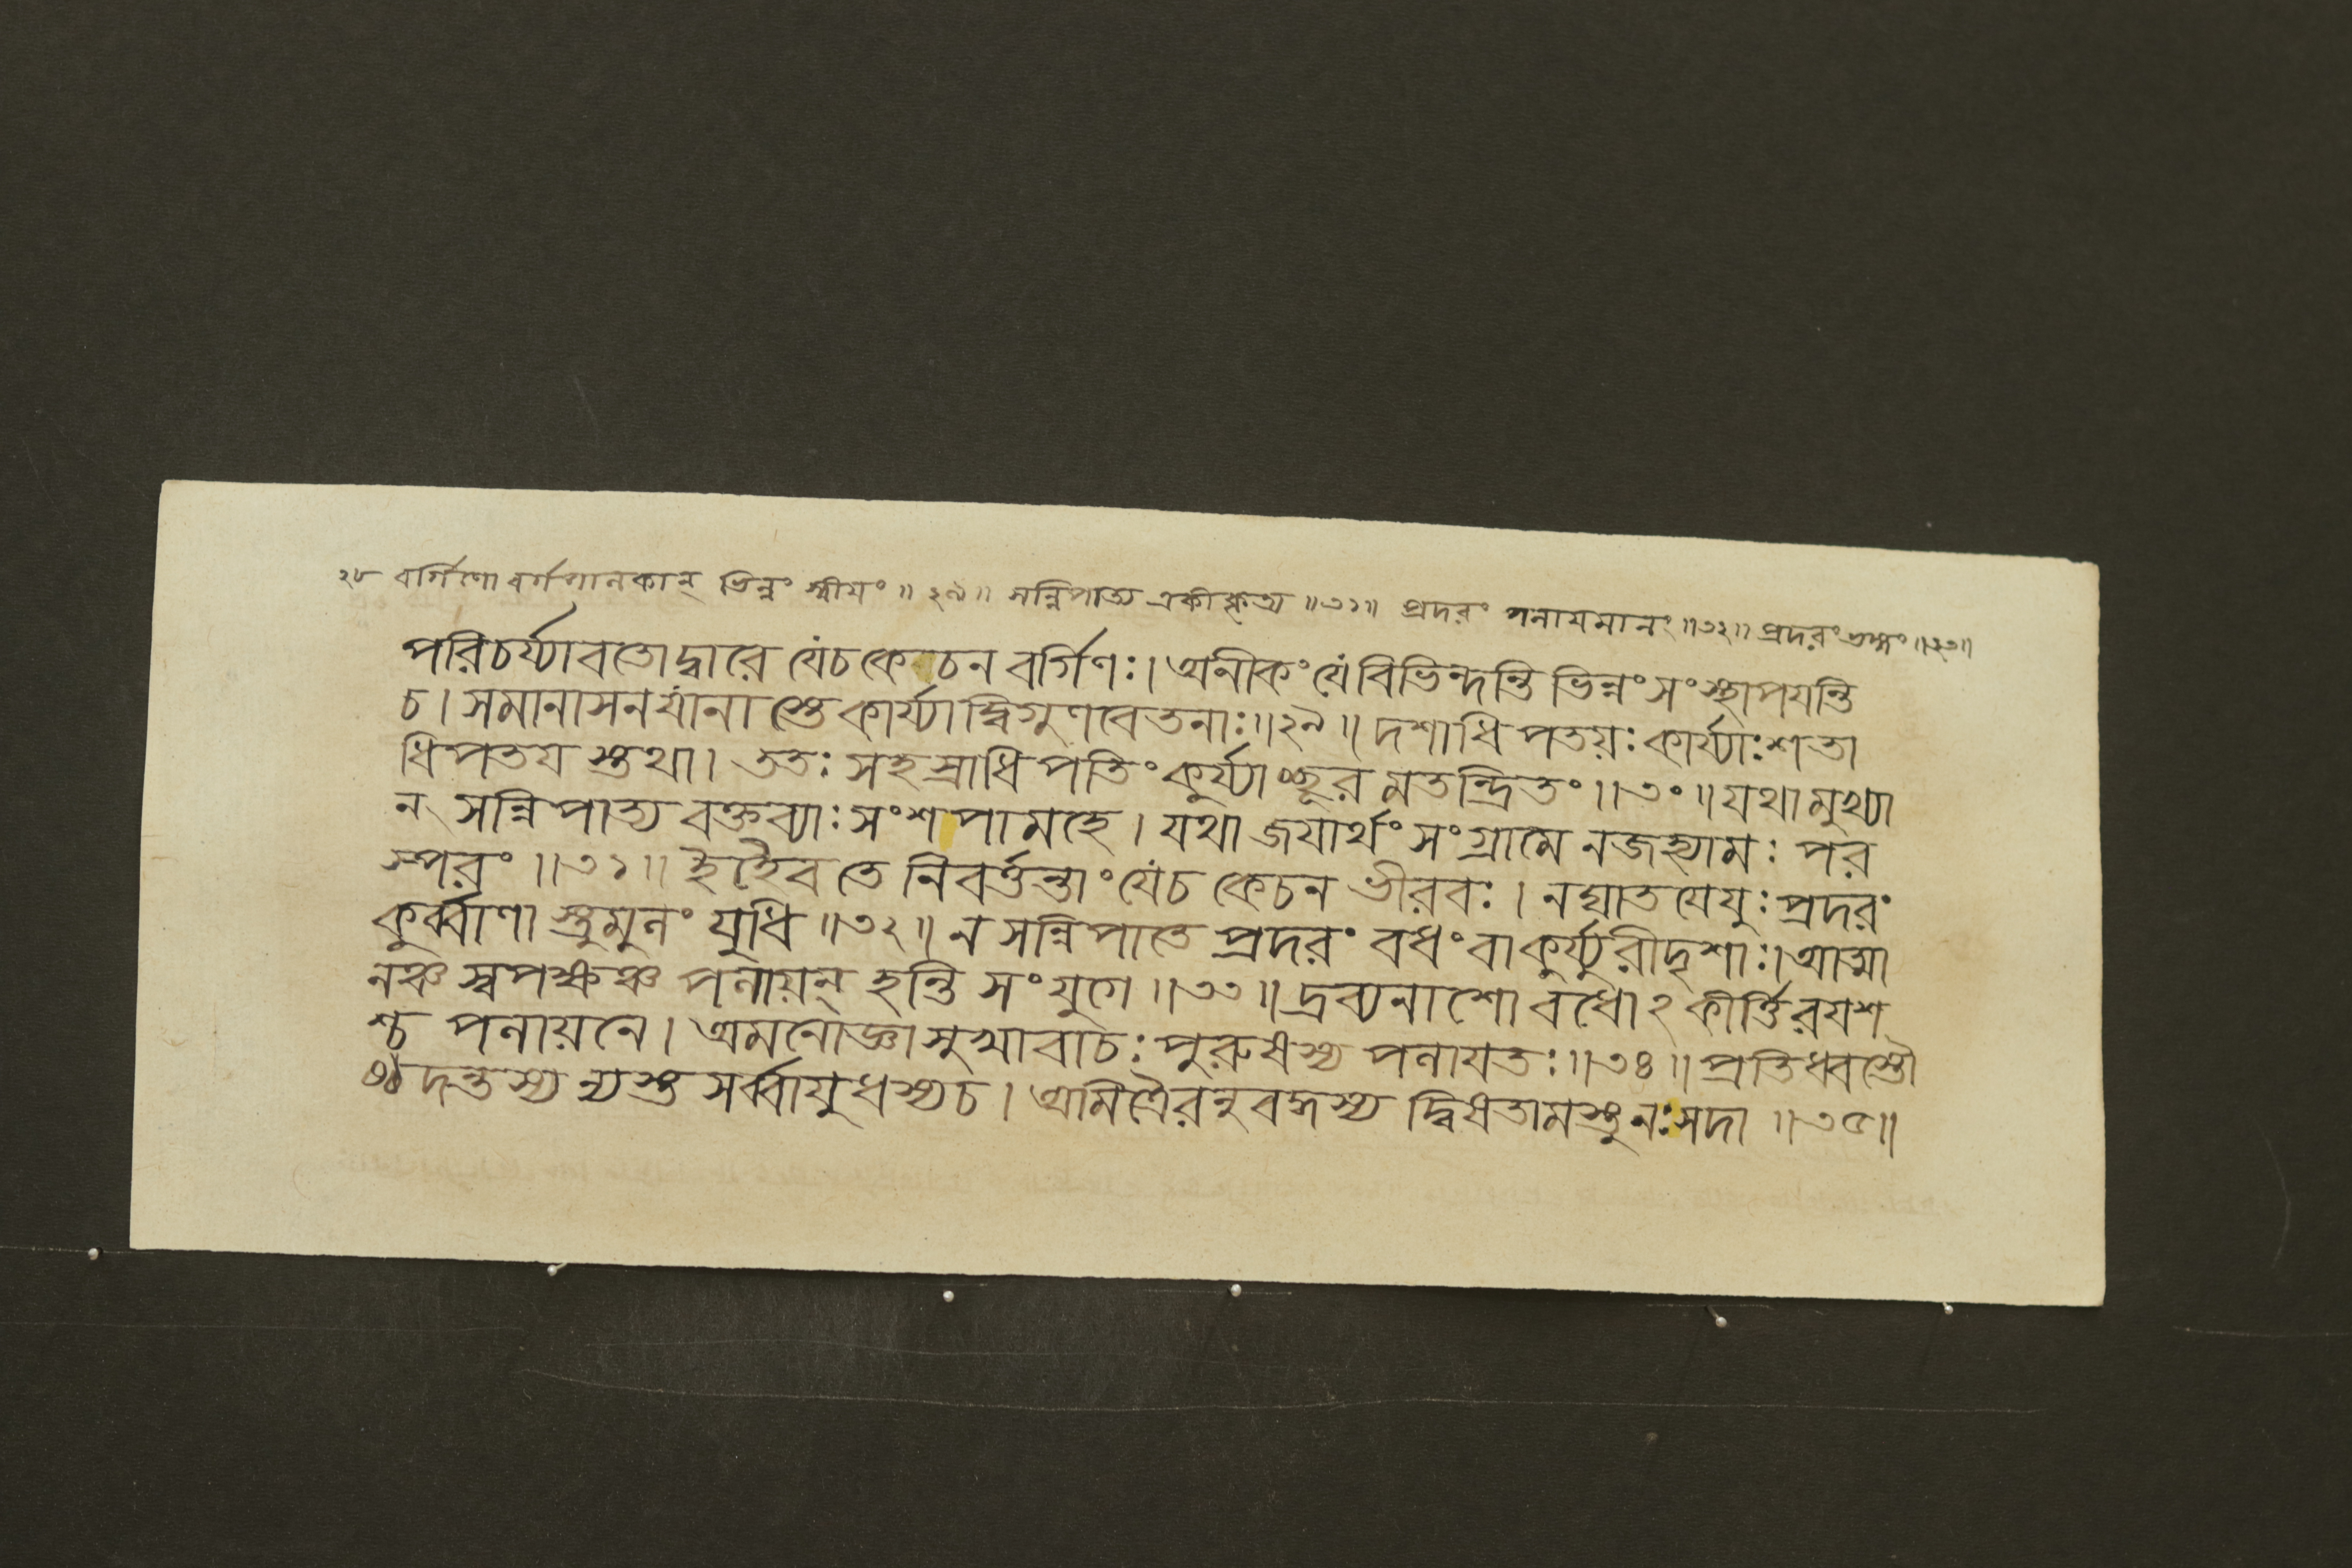 ২৮ বর্গিণো বর্গপালকান্ ভিন্নং স্বীয়ং ॥ ২৯ ॥ সন্নিপাত্য একীকৃত্য ॥৩১॥ প্রদরং পলায়মানং ॥৩২॥ প্রদরং ভঙ্গং ॥২৩॥
পরিচর্য্যাবতোদ্বারে যেচকেচন বর্গিণঃ। অনীকং যেবিভিন্দন্তি ভিন্নং সংস্থাপযন্তি
চ। সমানাসনযানাস্তেকার্য্যাদ্বিগুণবেতনাঃ॥২৯॥ দশাধিপতয়ঃকার্য্যাঃশতা
ধিপতযস্তথা। ততঃ সহস্রাধিপতিং কুর্য্যাচ্ছূরমতন্দ্রিতং ॥৩০॥ যথামুখ্যা
ন্ সন্নিপাত্য বক্তব্যাঃ সংশপামহে। যথা জযার্থং সংগ্রামে নজহ্যামঃ পর
স্পরং ॥৩১॥ ইহৈব তে নিবর্ত্তন্তাং যেচ কেচন ভীরবঃ। নঘাতযেযুঃ প্রদরং
কুর্ব্বাণাস্তুমুলং যুধি ॥৩২॥ ন সন্নিপাতে প্রদরং বধং বাকুর্য্যুরীদৃশাঃ। আত্মা
নঞ্চ স্বপক্ষঞ্চ পলায়ন্ হন্তি সংযুগে ॥৩৩॥ দ্রব্যনাশো বধোঽকীর্ত্তিরযশ
শ্চ পলায়নে। অমনোজ্ঞাসুখাবাচঃ পুরুষস্য পলাযতঃ॥৩৪॥ প্রতিধ্বস্তৌ
ষ্ঠদন্তস্য ন্যস্তসর্ব্বাযুধস্যচ। অমিত্রৈরনুবদ্ধস্য দ্বিষতামস্তুনঃসদা ॥৩৫॥